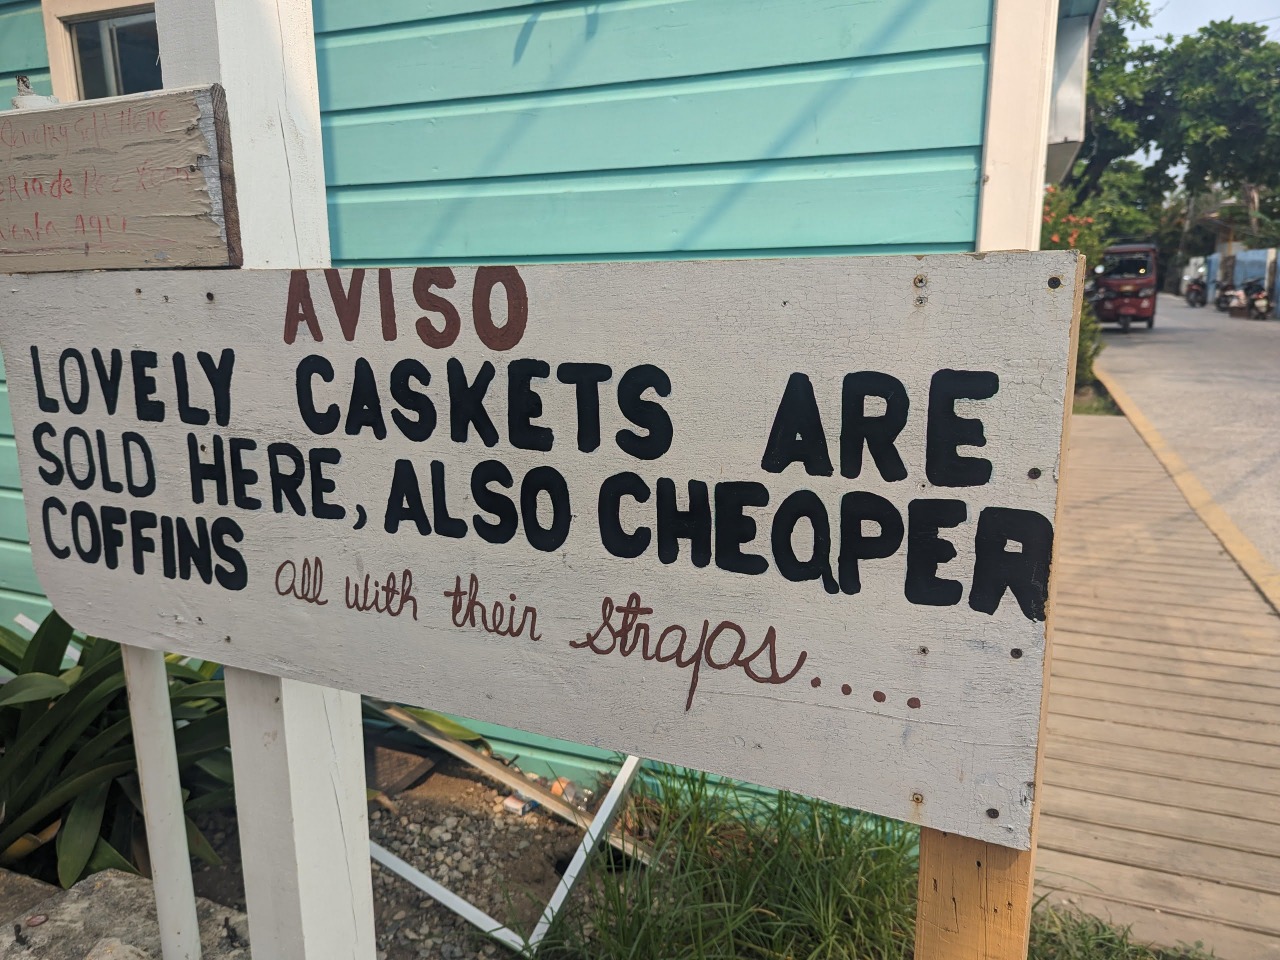 Sold HERE
de Pez
Venta AQUI
AVISO
LOVELY CASKETS ARE
SOLD HERE, ALSO CHEAPER
COFFINS all with their straps....